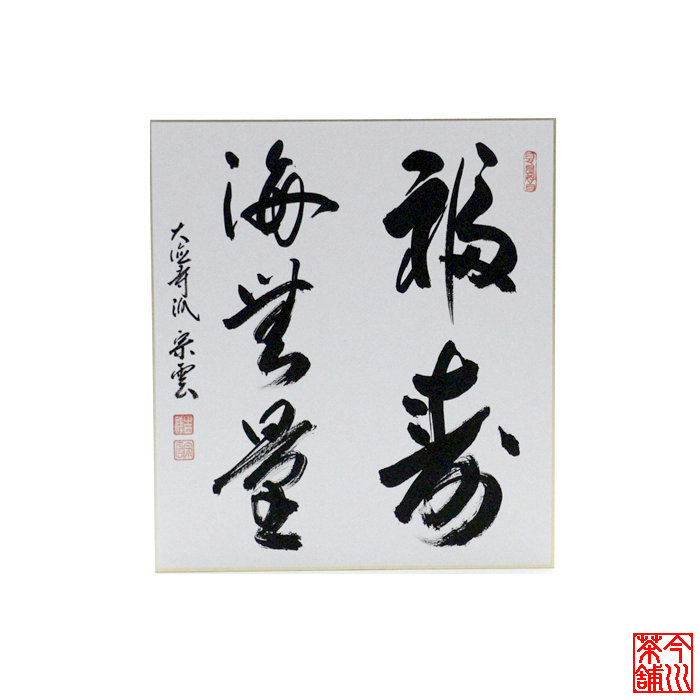 福寿
海無量
大徳寺派 宗雲
今川
茶舗